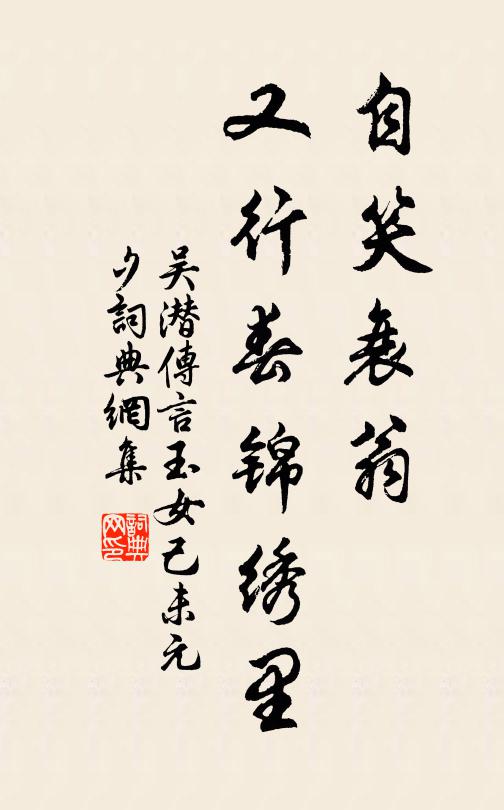 自笑衰翁
又行春锦绣里
吴潜傳言玉女己未元
夕詞典網集
詞典网印